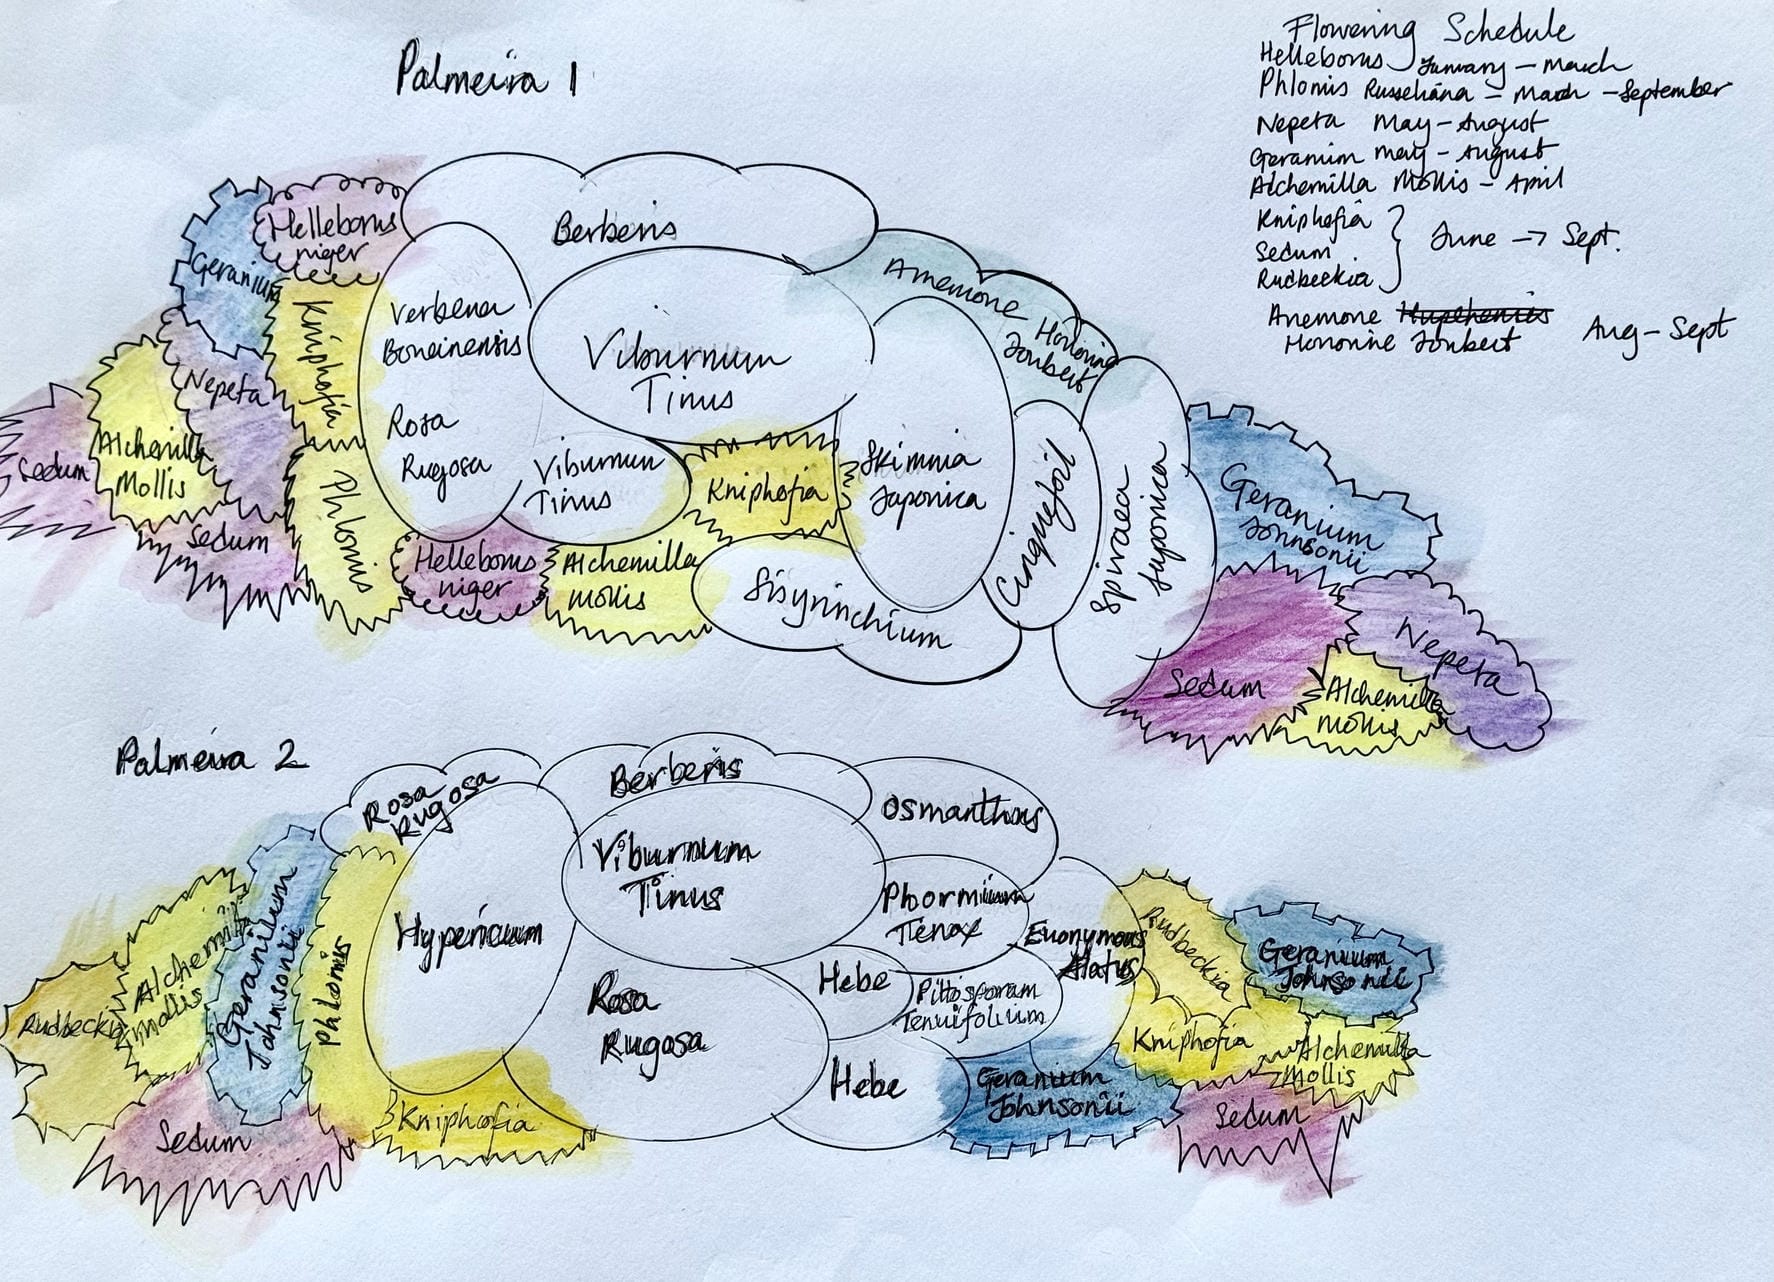 Palmeira 1
Flowering Schedule
Helleborus January - March
Phlomis Russeliana - March - September
Nepeta May - August
Geranium May - August
Alchemilla Mollis - April
Kniphofia
Sedum
Rudbeckia
June -> Sept.
Anemone
Honorine Joubert Aug - Sept
Helleborus
niger
Geranium
Kniphofia
Berberis
Anemone
Honorine
Joubert
Verbena
Boneinensis
Rosa
Rugosa
Viburnum
Tinus
Nepeta
Alchemilla
Mollis
Sedum
Sedum
Phlomis
Viburnum
Tinus
Kniphofia
Skimmia
Japonica
Cinquefoil
Spiraea
Japonica
Geranium
Jonnsonii
Helleborus
niger
Alchemilla
mollis
Sisyrinchium
Sedum
Nepeta
Alchemilla
Mollis
Palmeira 2
Rosa
Rugosa
Berberis
Osmanthus
Viburnum
Tinus
Hypericum
Phormium
Tenax
Euonymous
Alatus
Rudbeckia
Geranium
Johnsonii
Rudbeckia
Alchemilla
mollis
Geranium
Johnsonii
Phlomis
Rosa
Rugosa
Hebe
Pittosporum
Tenuifolium
Kniphofia
Alchemilla
Mollis
Hebe
Geranium
Johnsonii
Sedum
Sedum
Kniphofia